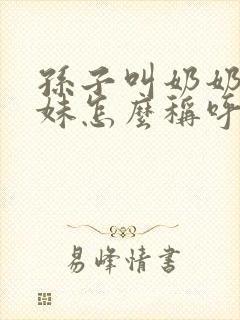 孫子叫奶奶
妹怎麼稱呼
易峰情書